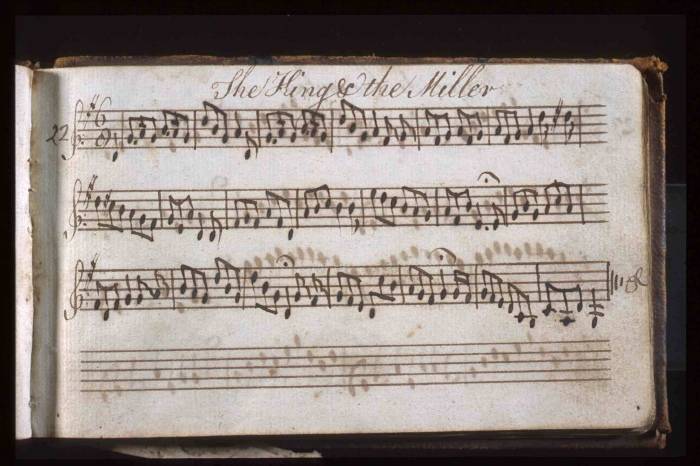 The King & the Miller
22
6
8